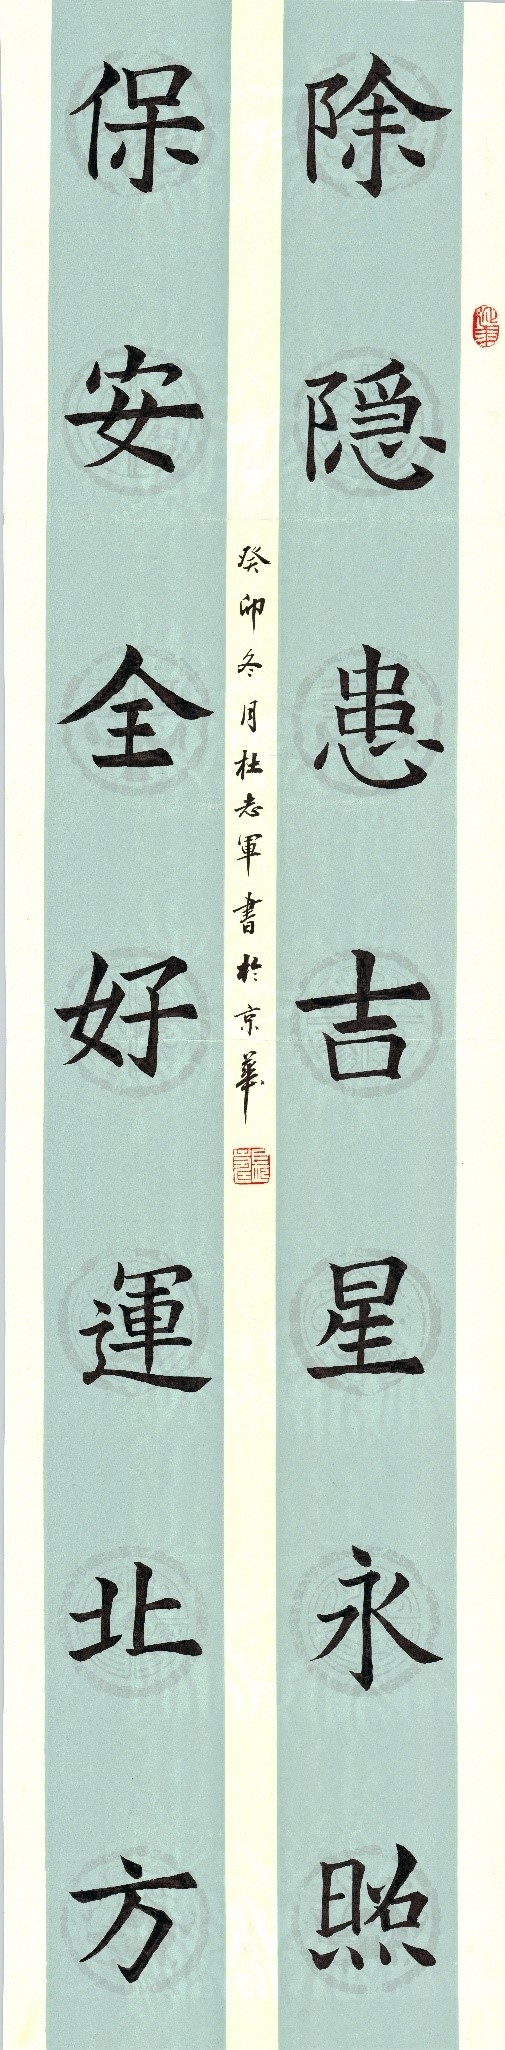 除隐患吉星永照
保安全好運北方
癸卯冬月杜志軍書於京華